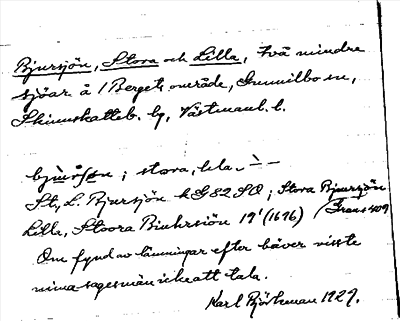 Bjursjön, Stora och Lilla, två mindre
sjöar å 1 Bergets område, Gunnilbo sn,
Skinnskatteb. bg, Västmanl. l.
stora, lila
St, L. Bjursjön kG 82 SO; Stora Bjursjön
Lilla, Stoora Biuhrsiön 19' (1696) (Grau 409
Om fynd av lämningar efter bäver visste
mina sagesmän icke att tala.
Karl Björkman 1929.